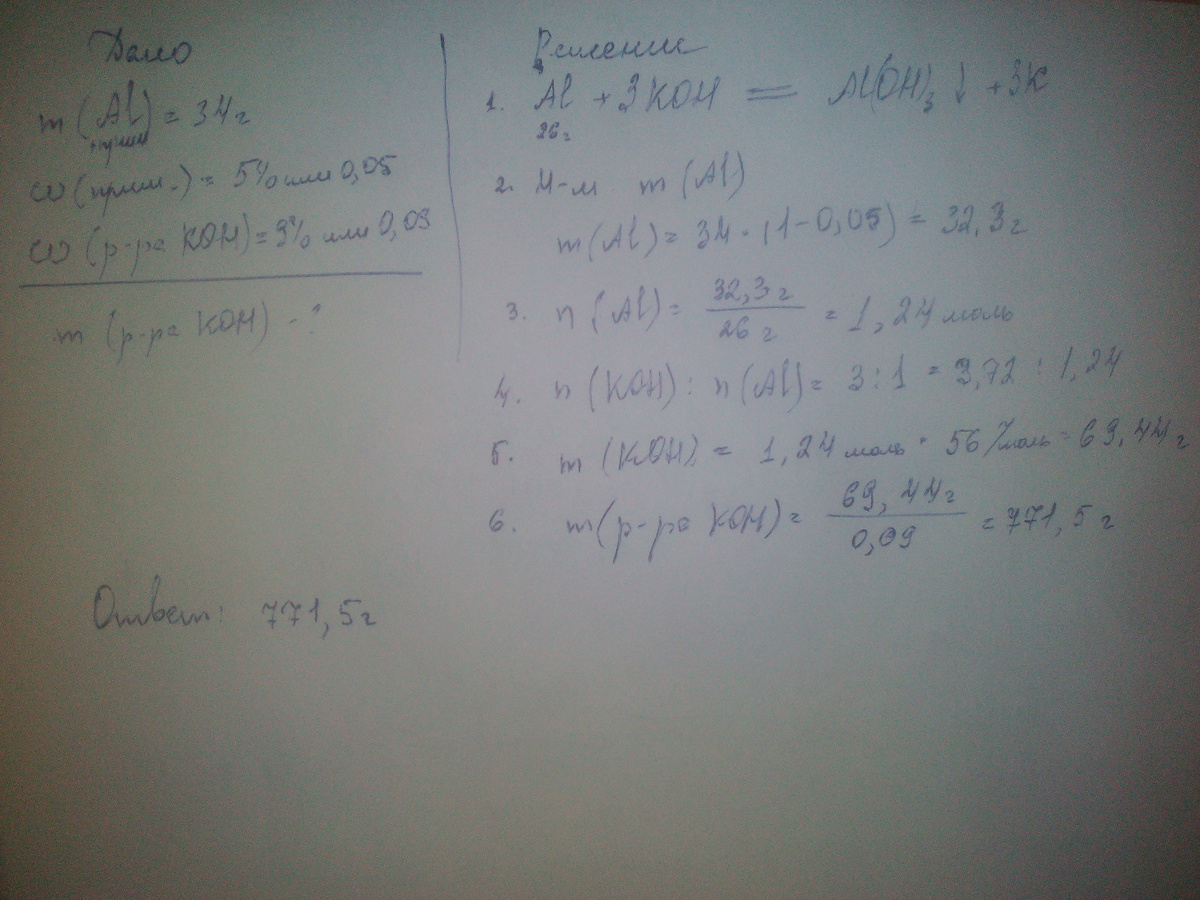 Дано
m (Al) = 34 г
+прим
ω (прим.) = 5% или 0,05
ω (р-ра KOH) = 9% или 0,09
m (р-ра KOH) - ?
Решение
1. Al + 3KOH = Al(OH)3 ↓ + 3K
26г
2. Н-м m (Al)
m (Al) = 34 · (1 - 0,05) = 32,3 г
3. n (Al) = 32,3 г / 26 г = 1,24 моль
4. n (KOH) : n (Al) = 3 : 1 = 3,72 : 1,24
5. m (KOH) = 1,24 моль · 56 г/моль = 69,44 г
6. m (р-ра KOH) = 69,44 г / 0,09 = 771,5 г
Ответ: 771,5 г